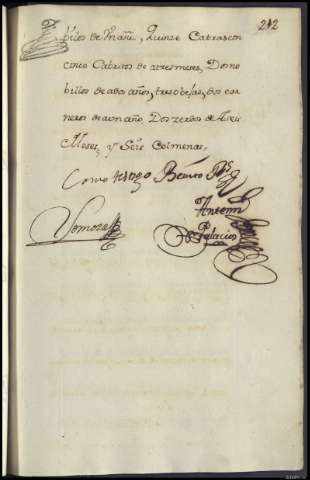 242
billos de un año, Quinze Cabras con
cinco Cabritos de a tres meses, Dos no
billos de a dos años, tres obejas, dos car
neros de a un año, Dos zerdos de a seis
Meses, y Seis Colmenas.
Como testigo Benito
Antonio
Palacios